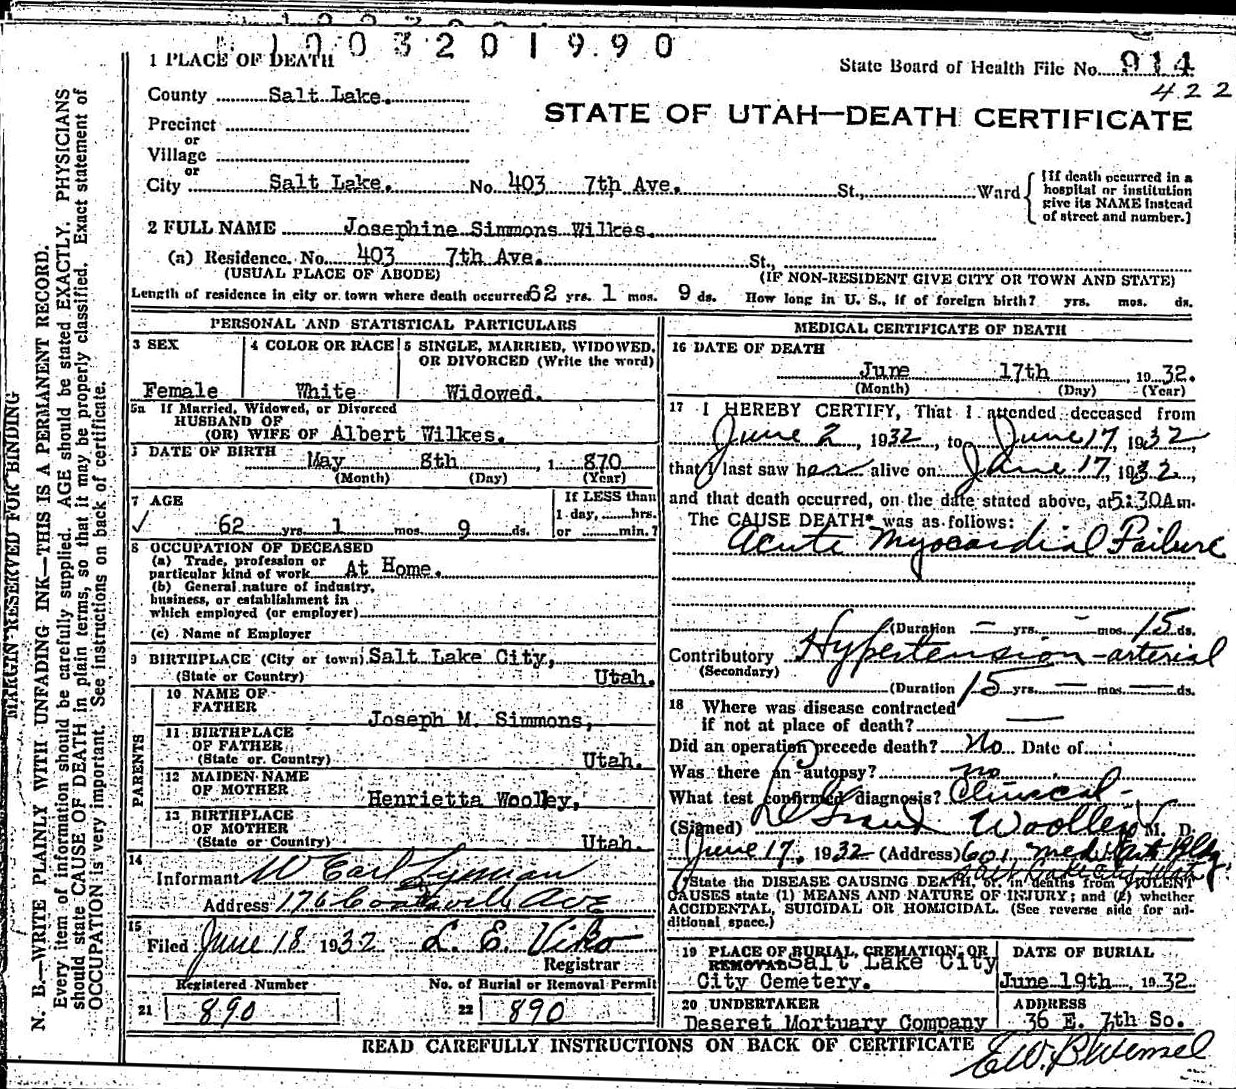 1003201990
1 PLACE OF DEATH
State Board of Health File No. 914
422
County Salt Lake.
STATE OF UTAH—DEATH CERTIFICATE
Precinct
or
Village
or
City Salt Lake. No. 403 7th Ave. St., Ward
[If death occurred in a
hospital or institution
give its NAME instead
of street and number.]
2 FULL NAME Josephine Simmons Wilkes.
(a) Residence. No. 403 7th Ave. St.,
(USUAL PLACE OF ABODE) (IF NON-RESIDENT GIVE CITY OR TOWN AND STATE)
Length of residence in city or town where death occurred 62 yrs. 1 mos. 9 ds. How long in U. S., if of foreign birth? yrs. mos. ds.
PERSONAL AND STATISTICAL PARTICULARS
3 SEX
Female
4 COLOR OR RACE
White
5 SINGLE, MARRIED, WIDOWED,
OR DIVORCED (Write the word)
Widowed.
5a If Married, Widowed, or Divorced
HUSBAND OF
(OR) WIFE OF Albert Wilkes.
DATE OF BIRTH
May 8th , 1 870
(Month) (Day) (Year)
7 AGE
✓ 62 yrs. 1 mos. 9 ds.
If LESS than
1 day, hrs.
or min.?
8 OCCUPATION OF DECEASED
(a) Trade, profession or
particular kind of work At Home.
(b) General nature of industry,
business, or establishment in
which employed (or employer)
(c) Name of Employer
9 BIRTHPLACE (City or town) Salt Lake City,
(State or Country) Utah.
PARENTS
10 NAME OF
FATHER
Joseph M. Simmons,
11 BIRTHPLACE
OF FATHER
(State or Country) Utah.
12 MAIDEN NAME
OF MOTHER
Henrietta Woolley,
13 BIRTHPLACE
OF MOTHER
(State or Country) Utah.
14
Informant W Carl Lyman
Address 176 Ave
15
Filed June 18 1932 L. E. Viko
Registrar
Registered Number
21 890
No. of Burial or Removal Permit
22 890
MEDICAL CERTIFICATE OF DEATH
16 DATE OF DEATH
June 17th , 1932.
(Month) (Day) (Year)
17 I HEREBY CERTIFY, That I attended deceased from
June 2, 1932, to June 17, 1932
that I last saw her alive on June 17, 1932,
and that death occurred, on the date stated above, at 5:30A m.
The CAUSE DEATH* was as follows:
Acute Myocardial Failure
(Duration – yrs. – mos. 15 ds.
Contributory Hypertension – arterial
(Secondary)
(Duration 15 yrs. – mos. – ds.
18 Where was disease contracted
if not at place of death? —
Did an operation precede death? No Date of
Was there an autopsy? no
What test confirmed diagnosis? Clinical –
(Signed) Woolley M. D.
June 17, 1932 (Address) 601 Med. Art Bldg.
Salt Lake City Utah
*State the DISEASE CAUSING DEATH, or, in deaths from VIOLENT
CAUSES state (1) MEANS AND NATURE OF INJURY; and (2) whether
ACCIDENTAL, SUICIDAL OR HOMICIDAL. (See reverse side for ad-
ditional space.)
19 PLACE OF BURIAL, CREMATION, OR
REMOVAL Salt Lake City
City Cemetery.
DATE OF BURIAL
June 19th , 1932.
20 UNDERTAKER
Deseret Mortuary Company
ADDRESS
36 E. 7th So.
READ CAREFULLY INSTRUCTIONS ON BACK OF CERTIFICATE
MARGIN RESERVED FOR BINDING
N. B.—WRITE PLAINLY WITH UNFADING INK—THIS IS A PERMANENT RECORD.
Every item of information should be carefully supplied. AGE should be stated EXACTLY. PHYSICIANS
should state CAUSE OF DEATH in plain terms, so that it may be properly classified. Exact statement of
OCCUPATION is very important. See instructions on back of certificate.